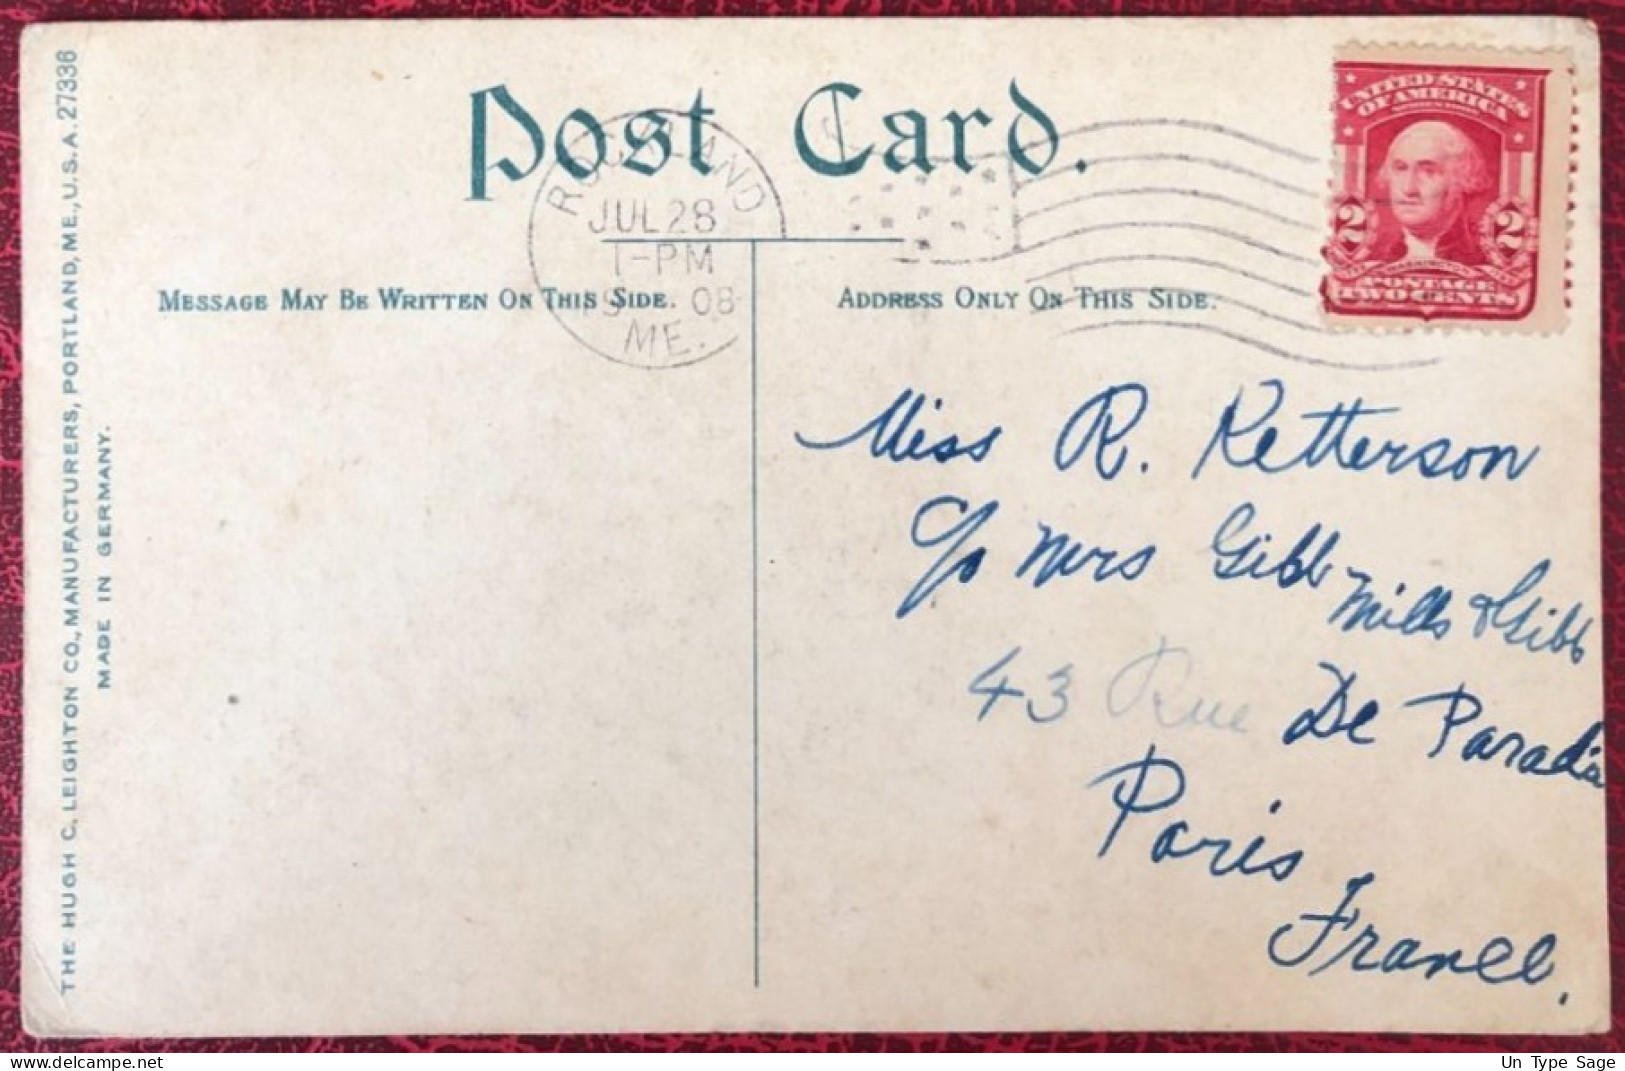 THE HUGH C. LEIGHTON CO., MANUFACTURERS, PORTLAND, ME., U.S.A. 27336
MADE IN GERMANY.
Post Card.
ROCKLAND
JUL 28
1-PM
19 08
ME.
MESSAGE MAY BE WRITTEN ON THIS SIDE.
ADDRESS ONLY ON THIS SIDE.
UNITED STATES
OF AMERICA
2 2
POSTAGE
TWO CENTS
Miss R. Ketterson
c/o Mrs Gibb Mills & Gibb
43 Rue De Paradis
Paris
France.
Un Type Sage